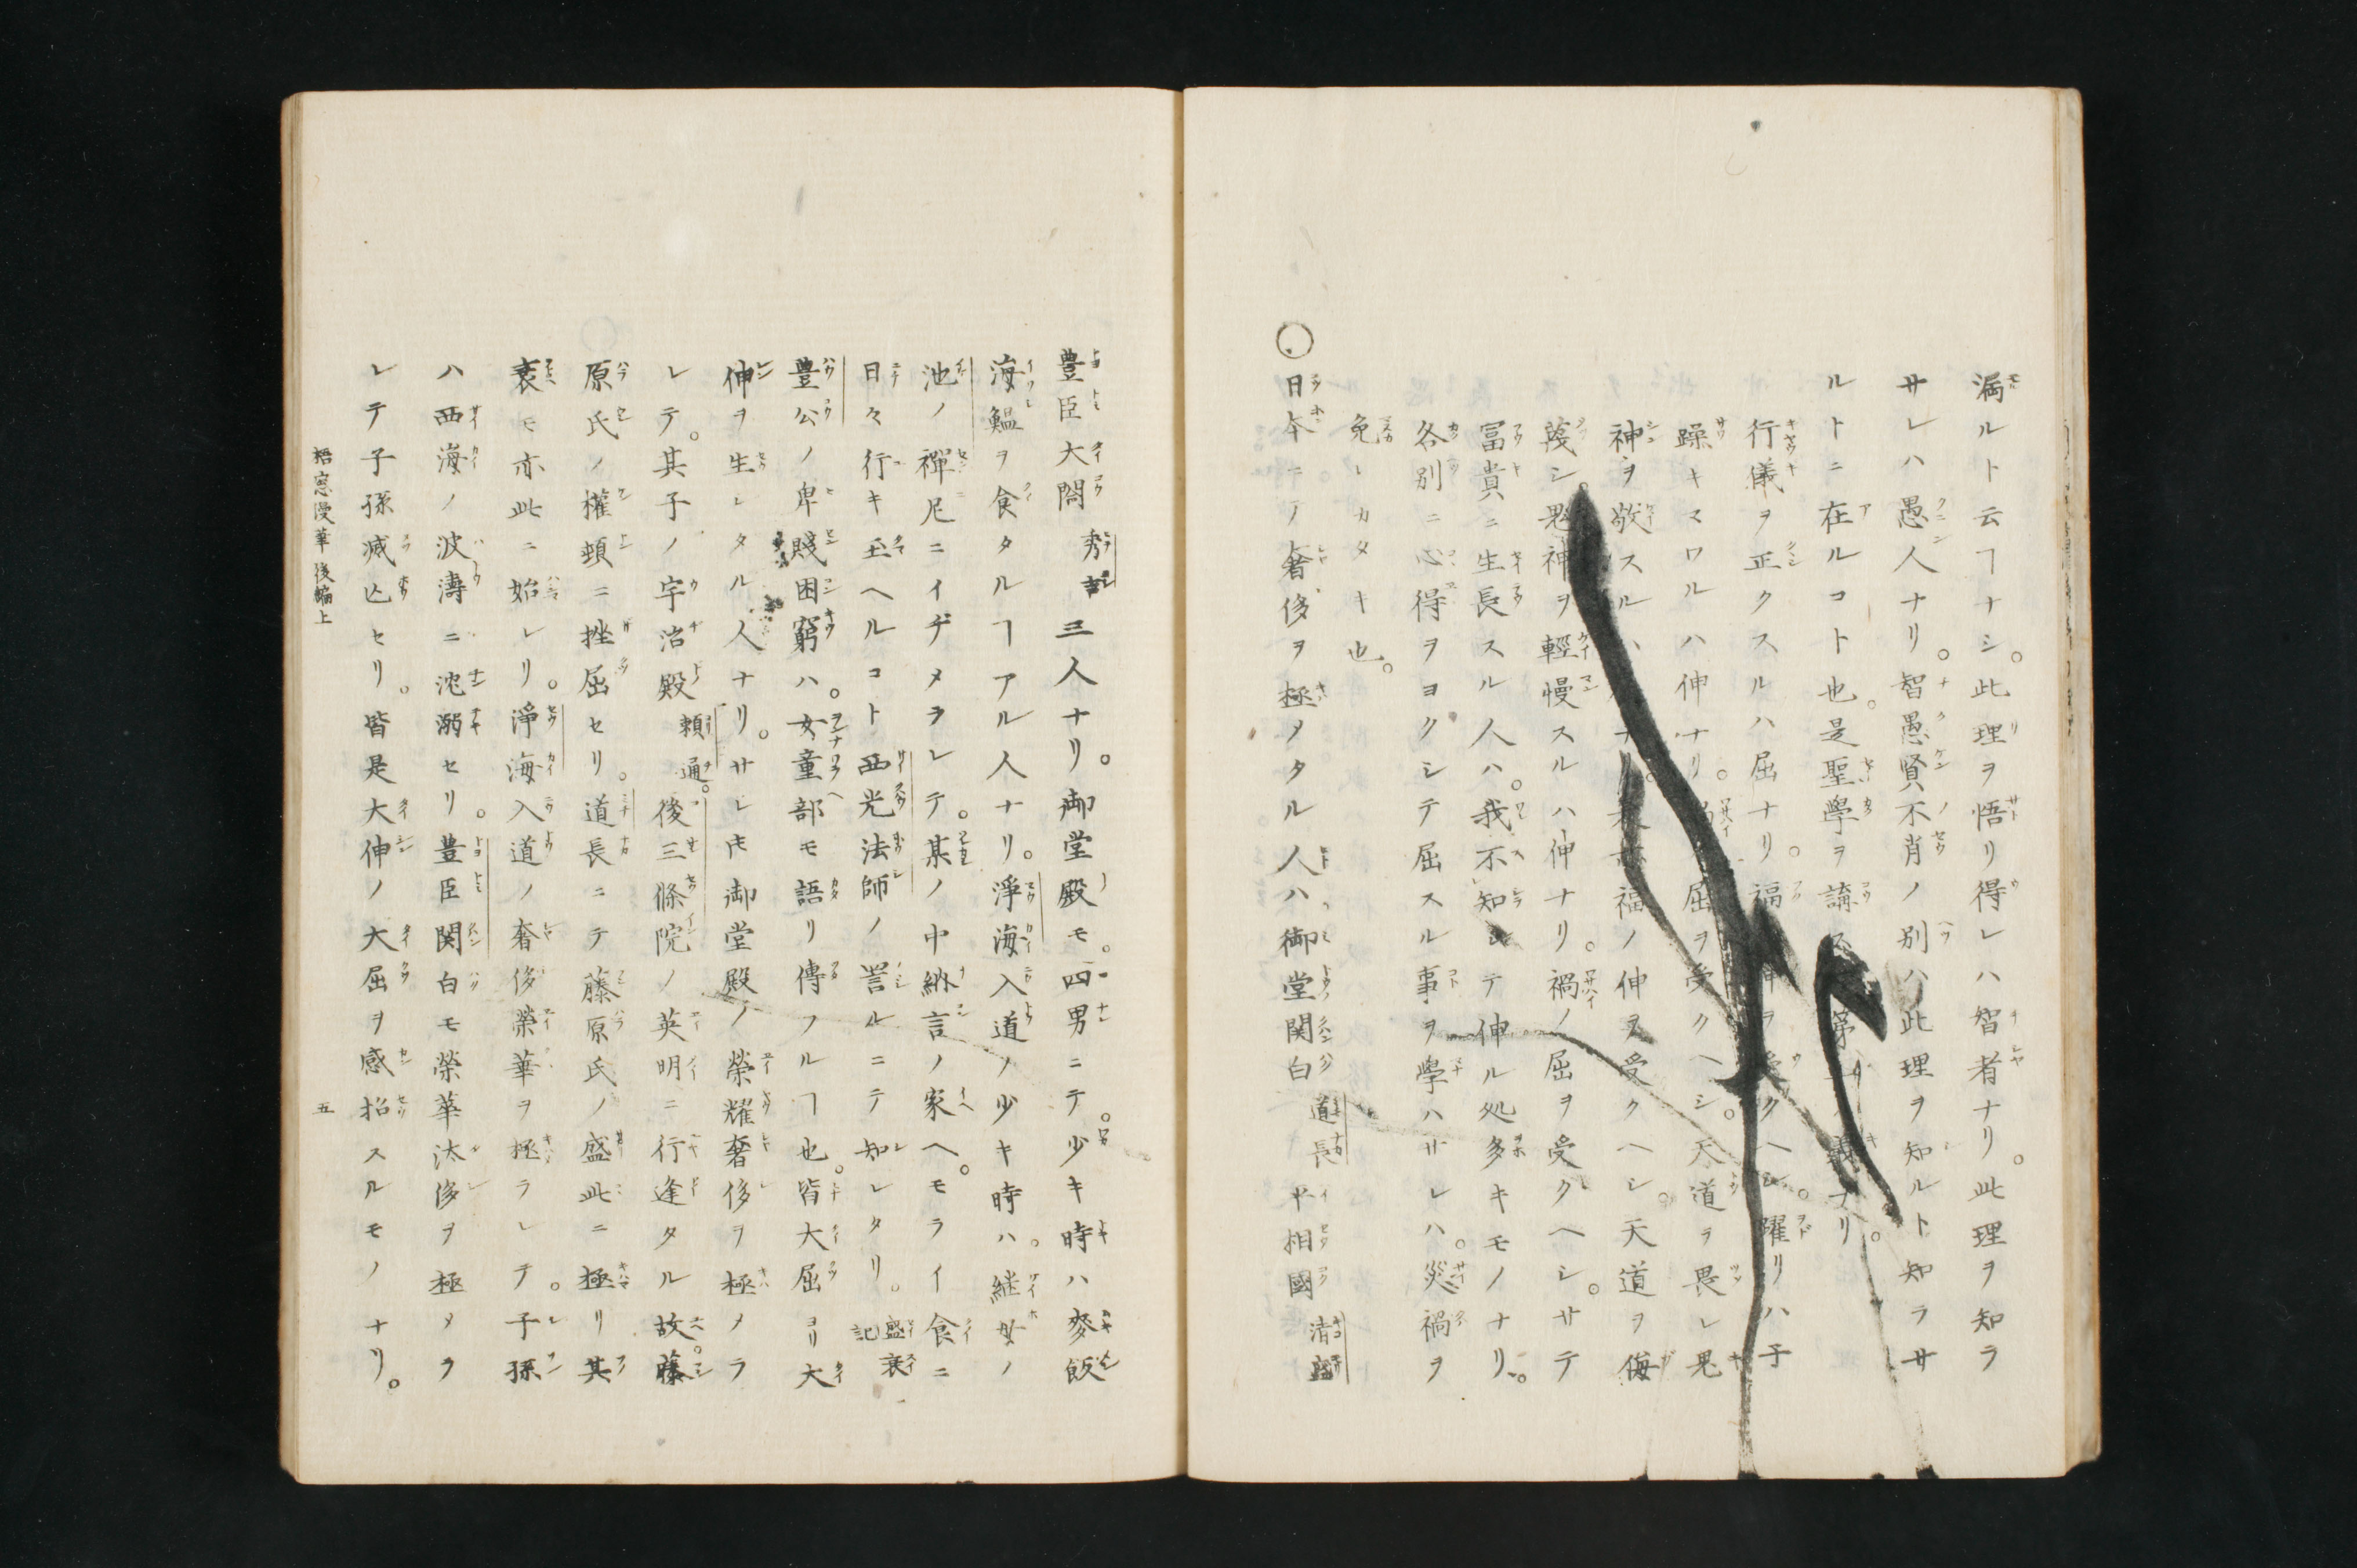 漏ルト云ヿナシ。此理ヲ悟リ得レハ智者ナリ。此理ヲ知ラ
サレハ愚人ナリ。智愚賢不肖ノ別ハ此理ヲ知ルト知ラサ
ルトニ在ルコト也。是聖學ヲ講 第一ノ義ナリ。
行儀ヲ正クスルハ屈ナリ。福 伸ヲ受クヘシ。躍リハ子
躁キマワルハ伸ナリ。 屈ヲ受クヘシ。天道ヲ畏レ鬼
神ヲ敬スルハ ナリ。 福ノ伸ヲ受クヘシ。天道ヲ侮
蔑シ。鬼神ヲ輕慢スルハ伸ナリ。禍ノ屈ヲ受クヘシ。サテ
冨貴ニ生長スル人ハ。我不知シテ伸ル処多キモノナリ。
各別ニ心得ヲヨクシテ屈スル事ヲ學ハサレハ。災禍ヲ
免レカタキ也。
○日本ニテ奢侈ヲ極メタル人ハ御堂関白道長 平相國清盛
豊臣大閤秀吉三人ナリ。御堂殿モ。四男ニテ。少キ時ハ麥飯
海鰛ヲ食タルヿアル人ナリ。淨海入道ノ少キ時ハ。継母ノ
池ノ禪尼ニイヂメラレテ。某ノ中納言ノ家ヘ。モライ食ニ
日々行キ玉ヘルコト西光法師ノ詈ルニテ知レタリ。盛衰記
豊公ノ卑賤困窮ハ。女童部モ語リ傳フルヿ也。皆大屈ヨリ大
伸ヲ生レタル人ナリ。サレ𪜈御堂殿ノ榮耀奢侈ヲ極メラ
レテ。其子ノ宇治殿頼通。後三條院ノ英明ニ行逢タル故。藤
原氏ノ權頓ニ挫屈セリ。道長ニテ藤原氏ノ盛此ニ極リ其
衰モ亦此ニ始レリ。淨海入道ノ奢侈榮華ヲ極ラレテ。子孫
ハ西海ノ波濤ニ沈溺セリ。豊臣関白モ榮華汰侈ヲ極メヲ
レテ子孫滅亡セリ。皆是大伸ノ大屈ヲ感招スルモノナリ。
梧窓漫筆後編上 五